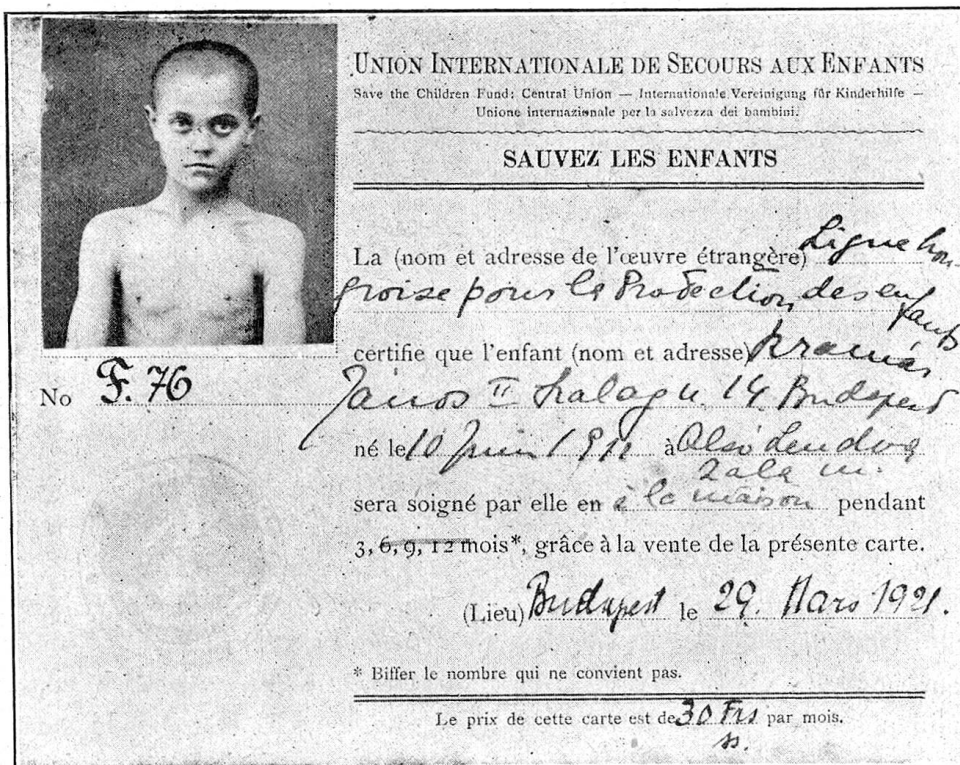 UNION INTERNATIONALE DE SECOURS AUX ENFANTS
Save the Children Fund: Central Union — Internationale Vereinigung für Kinderhilfe —
Unione internazionale per la salvezza dei bambini.
SAUVEZ LES ENFANTS
La (nom et adresse de l'œuvre étrangère) Ligue hon-
groise pour la Protection des enfants
certifie que l'enfant (nom et adresse)
No F. 76
János II 14 Budapest
né le 10 Juin 1911 à Alsó Lendva
Zala m.
sera soigné par elle en à la maison pendant
3, 6, 9, 12 mois*, grâce à la vente de la présente carte.
(Lieu) Budapest le 29. Mars 1921.
* Biffer le nombre qui ne convient pas.
Le prix de cette carte est de 30 Frs par mois.
s.